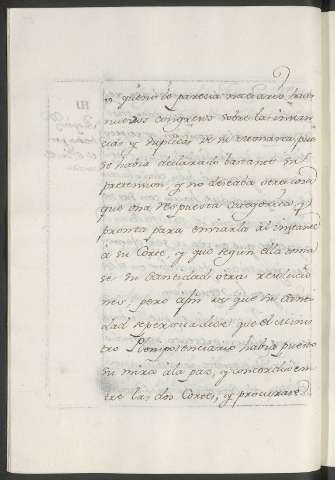 q.e no le parecia necesario hacer
nuevos congresos sobre las instan
cias y duplicas de su Monarca, pu
es havia declarado bastante su
pretension, y no deseaba otra cosa
que una respuesta categorica, y
pronta para enviarla al instante
à su Corte, y que segun ella toma
se su Santidad otra resolucio
nes; pero à fin de que su Santi
dad se persuadiese que el Minis
tro Plenipotenciario havia puesto
su mira à la paz, y concordia en
tre las dos Cortes, y procurase